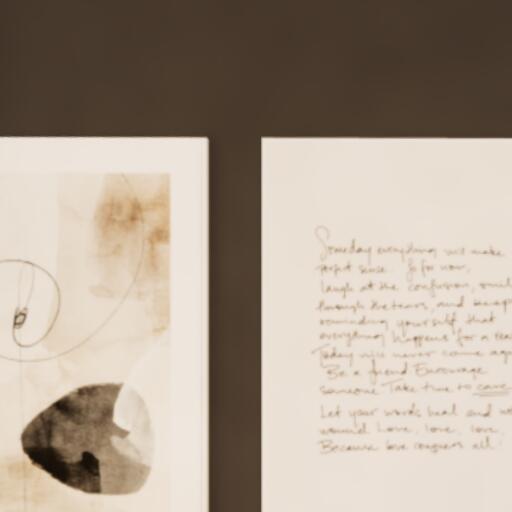 Someday everything will make
perfect sense. So for now,
laugh at the confusion, smil
through the tears, and keep
reminding yourself that
everything happens for a rea
Today will never come aga
Be a friend Encourage
someone Take time to care
Let your words heal and no
wound Love, love, love,
Because love conquers all